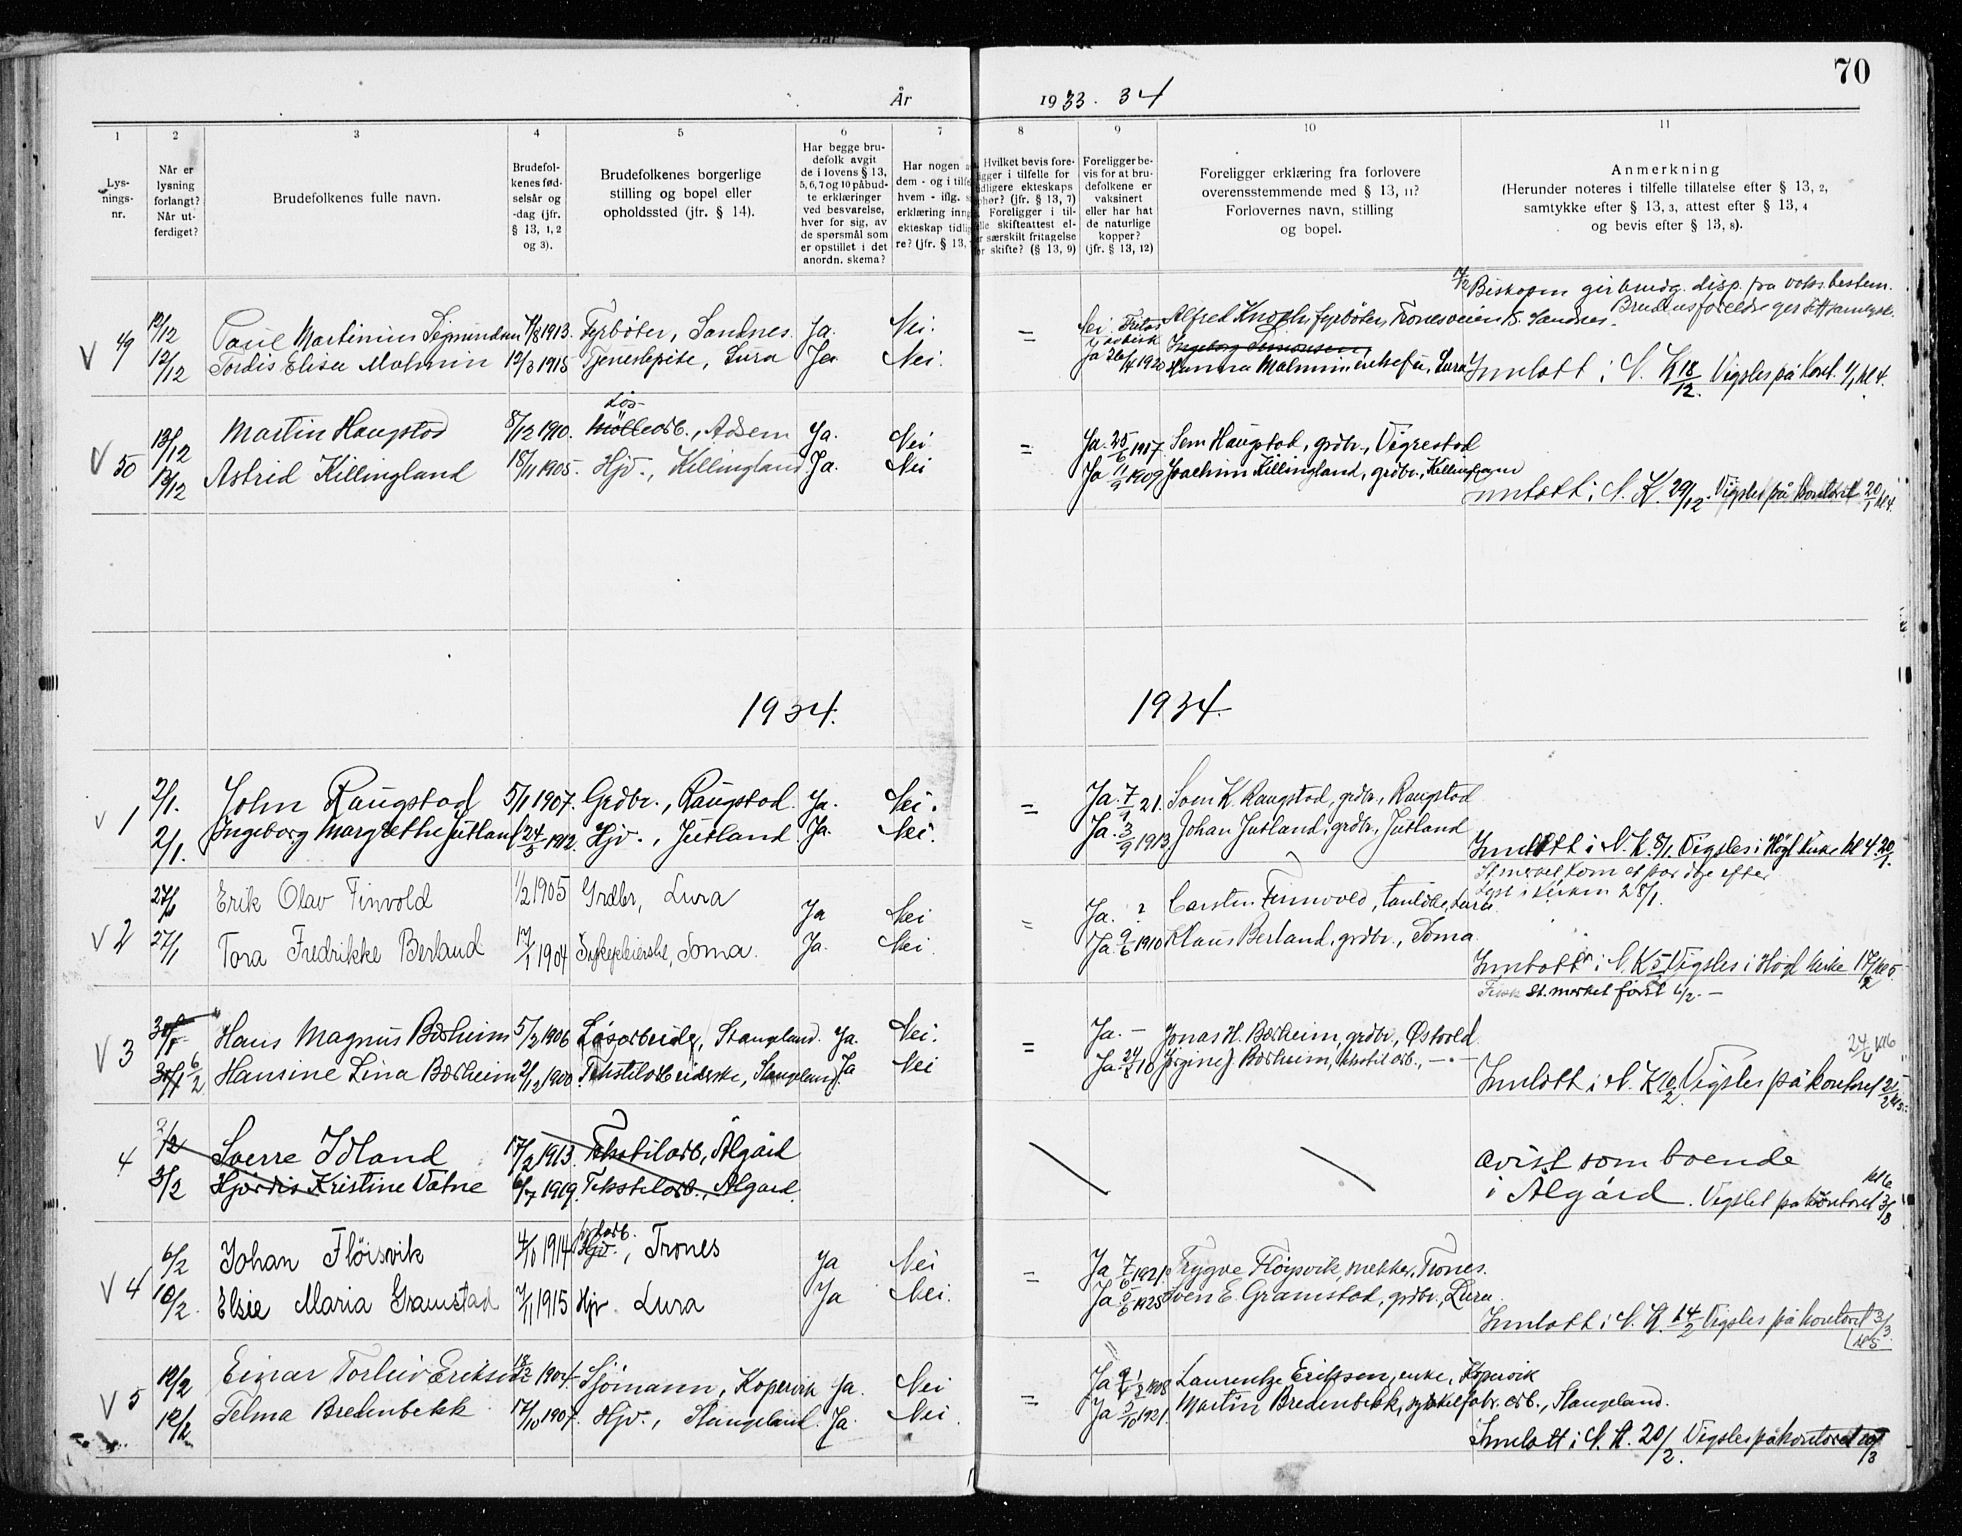 70
År 1933. 34
1 2 3 4 5 6 7 8 9 10 11
Lys-
nings-
nr.
Når er
lysning
forlangt?
Når ut-
ferdiget?
Brudefolkenes fulle navn.
Brudefol-
kenes fød-
selsår og
-dag (jfr.
§ 13, 1, 2
og 3).
Brudefolkenes borgerlige
stilling og bopel eller
opholdssted (jfr. § 14).
Har begge bru-
defolk avgit
de i lovens § 13,
5, 6, 7 og 10 påbud-
te erklæringer
ved besvarelse,
hver for sig, av
de spørsmål som
er opstillet i det
anordn. skema?
Har nogen a
dem - og i tilfe
hvem - iflg. s
erklæring inng
ekteskap tidlig
re? (jfr. § 13,
Hvilket bevis fore-
ligger i tilfelle for
tidligere ekteskaps
ophør? (jfr. § 13, 7)
Foreligger i til-
felle skifteattest el-
er særskilt fritagelse
for skifte? (§ 13, 9)
Foreligger be-
vis for at bru-
defolkene er
vaksinert
eller har hat
de naturlige
kopper?
(jfr. § 13, 12)
Foreligger erklæring fra forlovere
overensstemmende med § 13, 11?
Forlovernes navn, stilling
og bopel.
Anmerkning
(Herunder noteres i tilfelle tillatelse efter § 13, 2,
samtykke efter § 13, 3, attest efter § 13, 4
og bevis efter § 13, 8).
Biskopen gir bmdg. disp. fra voks. bestem.
V 49 12/12 Paul Martinius Sigmundsen 7/8 1913. Fyrbøter, Sandnes. Ja. Nei. = Nei Alfred Knoph, fyrbøter, Tronesveien 8. Sandnes.
12/12 Tordis Elise Malmin 12/3 1915 Tjenestepike, Lura Ja Nei. Ja 26/4 1920 Ingeborg Simonsen,
Hanna Malmin, enkefru, Lura Innlatt i N. K 18/12. Vigsles på Kont. 1/1 kl 4.
V 50 13/12 Martin Haugstad 8/12 1910. Løs- Møllearb., Adsem Ja. Nei. = Ja. 25/6 1917. Sem Haugstad, grdbr., Vigrestad
13/12 Astrid Killingland 18/11 1905. Hjv., Killingland Ja. Nei Ja 11/9 1909 Joachim Killingland, grdbr., Killingland
Innlatt i N. K. 29/12. Vigslet på Kontoret 20/1 kl 4.
1934. 1934.
V 1 2/1. John Raugstad 5/1 1907. Grdbr., Raugstad. Ja. Nei. = Ja. 7/9 21. Som K. Raugstad, grdbr., Raugstad
2/1. Ingeborg Margrethe Jutland 24/5 1912. Hjv., Jutland Ja. Nei. Ja. 3/9 1913. Johan Jutland, grdbr., Jutland
Innlatt i N. K. 8/1. Vigsles i Høgl. kirke kl 4. 20/1.
St. merket kom et par dage efter
Lyst i kirken 28/1.
V 2 27/1 Erik Olav Finvold 1/2 1905 Grdbr, Lura Ja Nei = Ja. ? Carsten Finnvold, Lura
27/1 Tora Fredrikke Berland 17/1 1904 Sykepleierske, Soma. Ja. Nei. Ja. 9/6 1910 Klaus Berland, grdbr., Soma
Innlatt i N. K 5/2 Vigsles i Høgl kirke 17/2 kl 5.
St. merket først 6/2. —
V 3 Hans Magnus Bærheim 5/2 1906 Løsarbeider, Stangeland. Ja. Nei. = Ja. — Jonas H. Bærheim, grdbr., Østvold
6/2 Hansine Lina Bærheim 2/12 1900. Tekstilarbeiderske, Stangeland Ja Nei Ja. 24/8 10 Jørgine J Bærheim, tekstilarb., — " —
Innlatt i N. K 10/2 Vigsles på kontoret
4 2/2 Sverre Idland 17/2 1913. Tekstilarb., Ålgård
3/2 Hjørdis Kristine Vatne 6/7 1919. Tekstilarb., Ålgård.
avist som boende
i Ålgård. Vigslet på kontoret 3/3 kl 6
V 4 6/2 Johan Fløisvik 1914 Hjv., Trones Ja Nei = Ja 7/6 1921. Trygve Fløysvik, mekker, Trones.
10/2. Elsie Maria Gramstad 7/1 1915 Hjv. Lura Ja Nei. Ja 1925 Sven E. Gramstad, grdbr., Lura.
Innlatt i N. K. 14/2 Vigsles på kontoret 3/3. kl 5
V 5 12/2 Einar Torleiv Eriksen 1904 Sjømann, Kopervik Ja. Nei = Ja 1908 Laurentze Eriksen, enke, Kopervik
12/2 Telma Bredenbekk 17/10 1907. Hjv., Stangeland. Ja. Nei. Ja 5/10 1921. Martin Bredenbekk, sykkelfabr. arb., Stangeland.
Innlatt i N. K. 20/2. Vigsles på kontoret 10/3